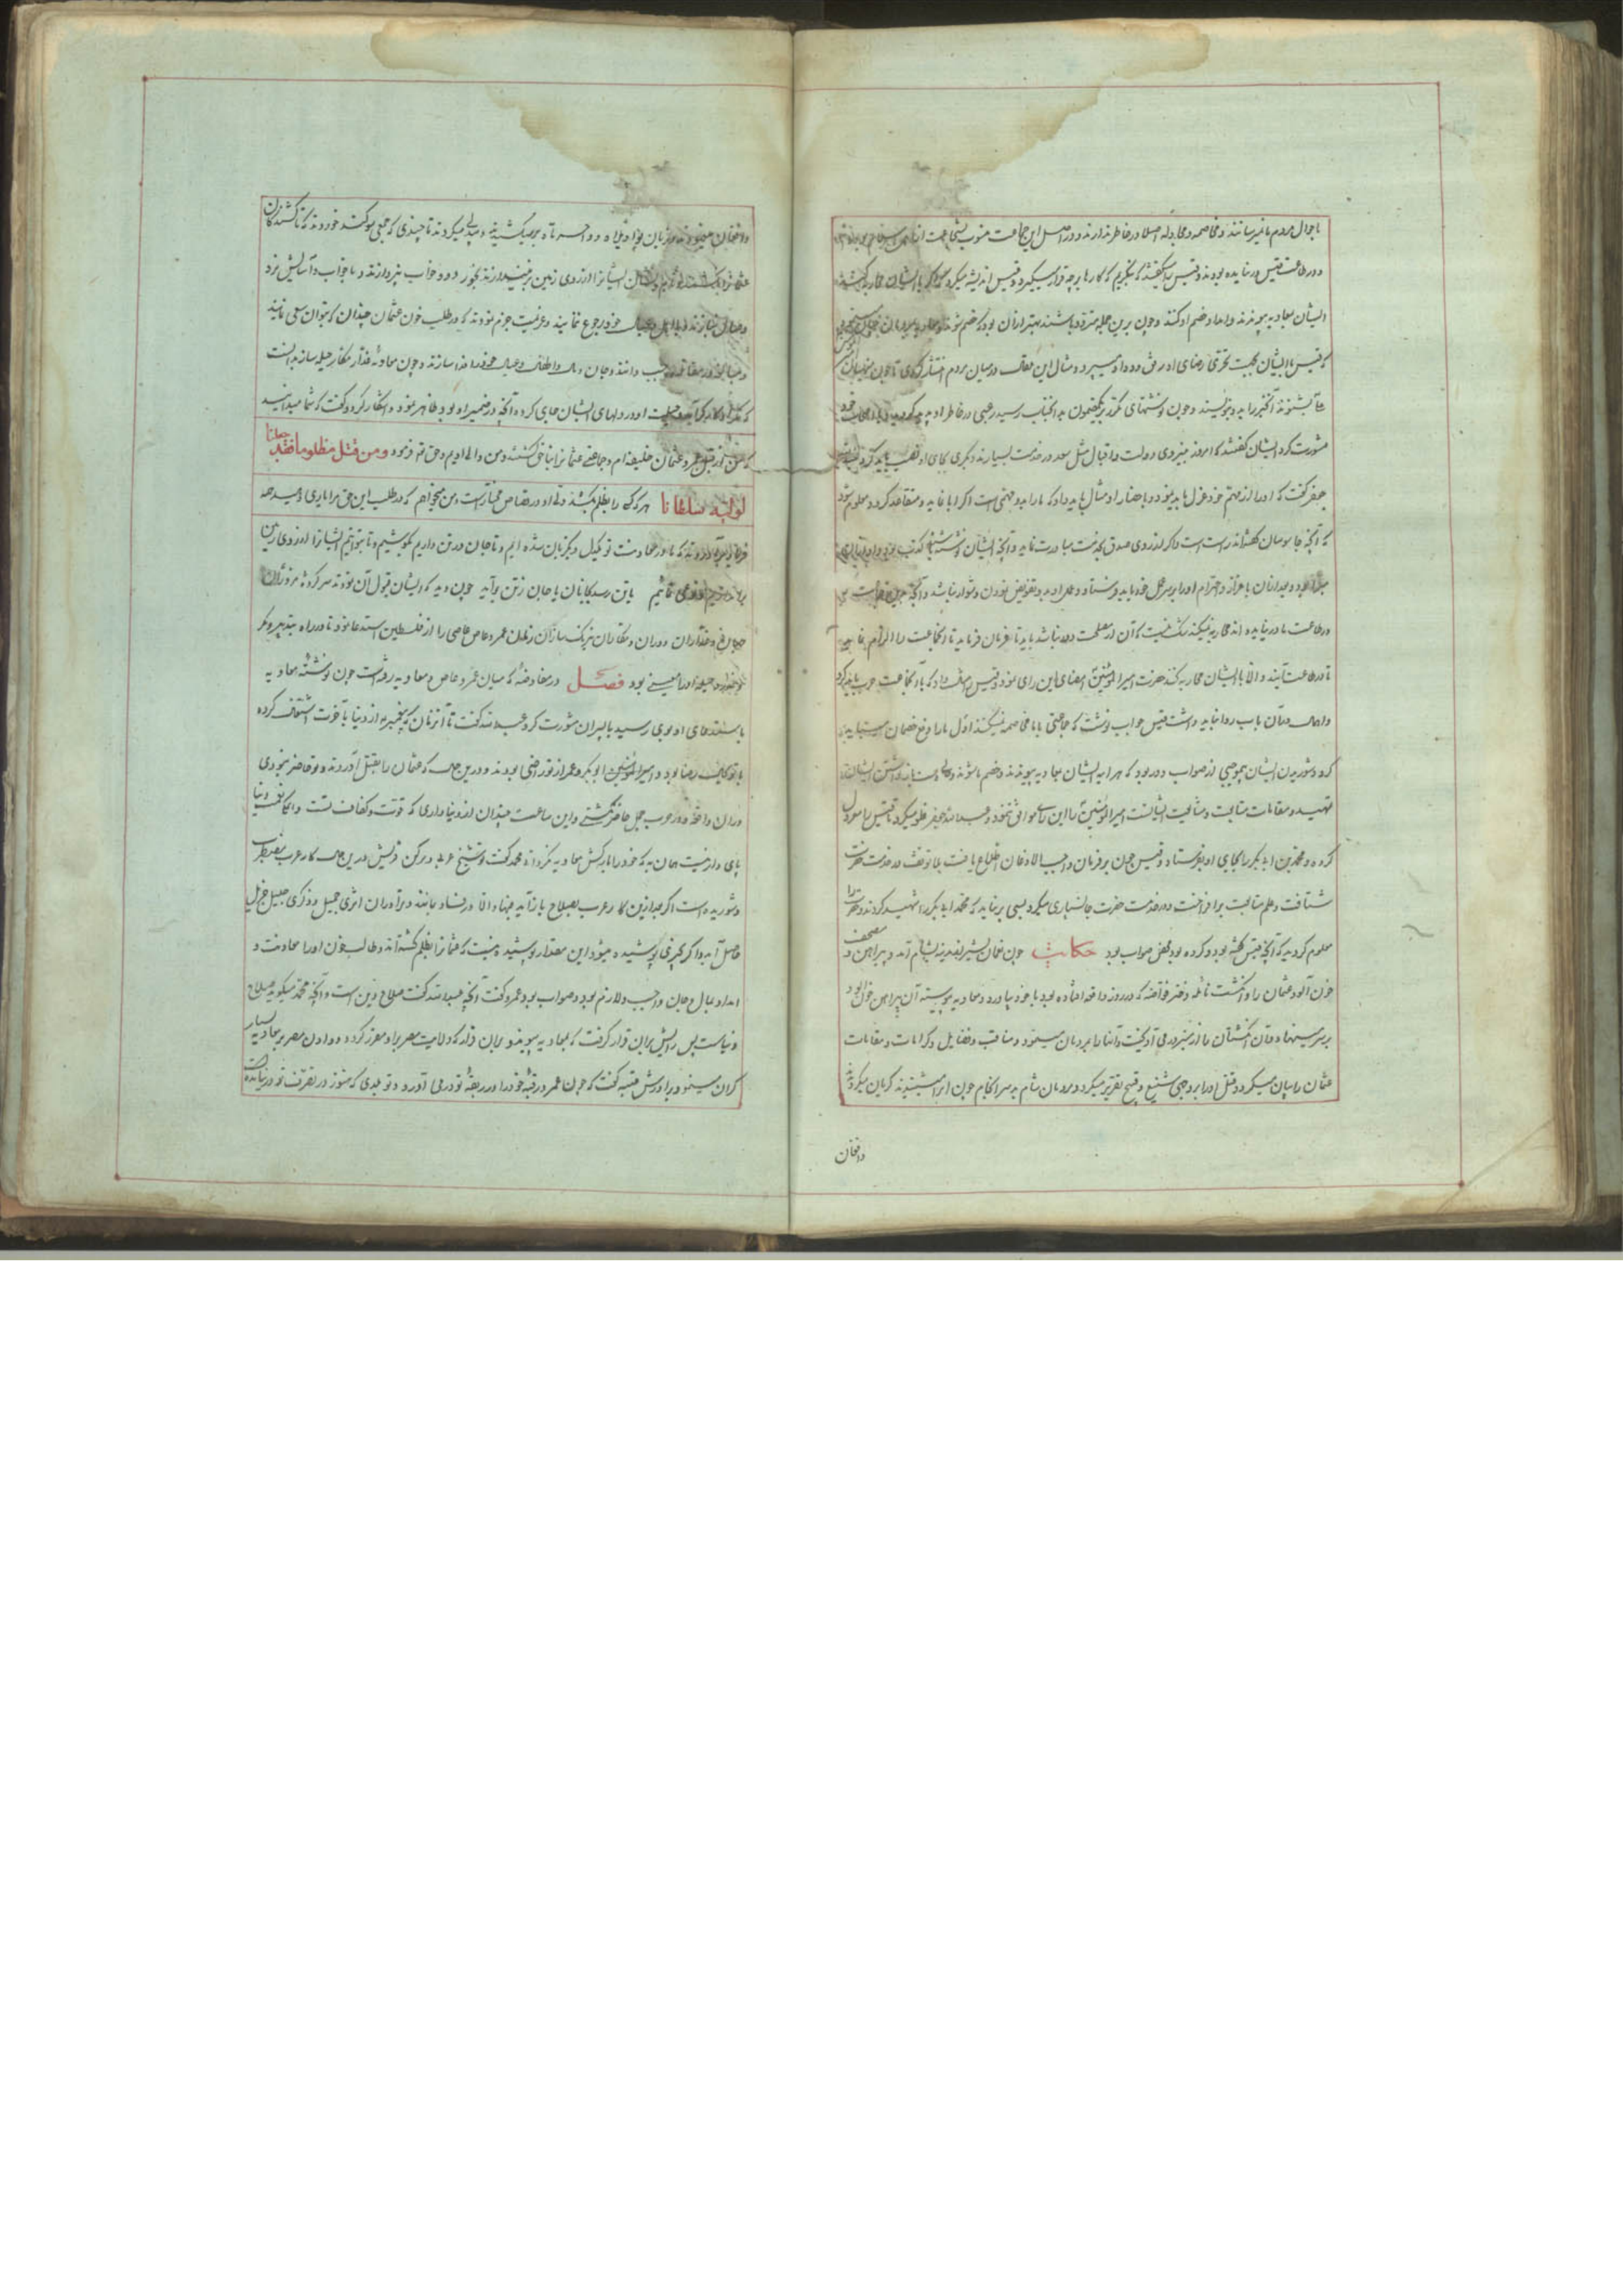 با جدال مردم نامیرسانند و مخاصمه و مجادله اصلا در خاطر ندارند و در اصل این جماعت منسوب بشجاعت اند
و در طاعت قیس در نیامده بودند و قیس را گفتند که بنگریم که کارها بر چه قرار میگیرد و قیس اندیشه میکرد که اگر با ایشان محاربه کند
ایشان بمعاویه پیوندند و امداد خصم او کنند و چون برین جمله متردد باشند بهتر از آن بود که خصم شوند و معاویه
که قیس با ایشان بجهت تحری رضای او رفق و مدارا میسپرد و مثال این مقالت در میان مردم انتشار کردی تا چون
بشنوند آنخبر را بدو بنویسند و چون نوشتهای مکرر برینمضمون بدانجناب رسید رعبی در خاطر او پدید
مشورت کرد ایشان گفتند که امروز بنیروی دولت و اقبال مثل سعد در خدمت بسیارند دیگری بجای او نصب باید کرد
جعفر گفت که او را از مهتم خود عزل باید نمود و باحضار او مثال باید داد که ما را بدو مهمی است اگر ابا نماید و متقاعد گردد معلوم شود
که آنچه جاسوسان گفته‌اند راست است و اگر از روی صدق بخدمت مبادرت نماید و آنچه ایشان نوشتند کذب بود
بود و بعد از آن باعزاز و احترام او را بر سر عمل خود باید فرستاد و عمل او بدو تفویض نمودن دشوار نباشد و آنچه
در طاعت ما در نیامده‌اند محاربه نمیکند شک نیست که آن از مصلحت دور نباشد باید تا فرمان فرماید تا آنجماعت را الزام نماید
تا در طاعت آیند و الا با ایشان محاربه کند حضرت امیرالمؤمنین امضای این رای نمود و قیس را مثال داد که با آنجماعت حرب باید کرد
و اهمال در آن باب روا نباید داشت قیس جواب نوشت که جماعتی با ما مخاصمه نمیکنند اول ما را دفع خصمان میباید
کرد و شوریدن ایشان بموجبی از صواب دور بود که هر آینه ایشان بمعاویه پیوندند و خصم ما شوند
تمهید مقامات متابعت و مشایعت ایشانست امیرالمؤمنین را این رای موافق ننمود و عبدالله جعفر غلو میکرد تا قیس را معزول
کرده و محمد بن ابی بکر را بجای او بفرستاد و قیس چون بر فرمان واجب الاذعان اطلاع یافت بلا توقف در خدمت حضرت
شتافت و علم متابعت برافراخت و در خدمت حضرت جانسپاری میکرد بسی بر نیامد که محمد ابی بکر را شهید کردند و حضرت را
معلوم گردید که آنچه قیس گفته بود و کرده بود محض صواب بود حکایت چون نعمان بشیر از مدینه بشام آمد و پیراهن و مصحف
خون آلود عثمان را و انگشت نائله دختر فرافصه که در روز واقعه افتاده بود با خود بیاورد و معاویه پیوسته آن پیراهن خون آلود
بر سر منبر نهاد و آن انگشتان را از منبر در می آویخت و آنها را بمردمان مینمود و مناقب و فضایل و کرامات و مقامات
عثمان را بیان میکرد و قتل او را بر وجهی شنیع و قبیح تقریر میکرد و مردمان شام بدسرانجام چون این میشنیدند گریان میکردند
وافغان
وافغان مینمودند و زبان بواویلاه و وا حسرتاه بر میکشیدند و بیدلی میکردند تا چندی که جمعی سوگند خوردند که تا کشندگان
عثمان را نکشند و ایشان را از روی زمین بر نیندازند بخور و خواب نپردازند و با خواب و آسایش نرد
نبازند و با اهل و عیال خود رجوع ننمایند و عزیمت جزم نمودند که در طلب خون عثمان چندان که بتوان سعی نمایند
و مبالغه در مقاتله واجب دانند و جان و مال و اطفال و عیال خود را فدا سازند و چون معاویه غدار مکار حیله ساز بدانست
که مکر او کارگر آمد و حیلت او در دلهای ایشان جای کرده آنچه در ضمیر او بود ظاهر نمود و آشکار کرد و گفت که شما میدانید
که من از قبل عمر و عثمان خلیفه‌ام و جماعتی عثمان را بناحق کشتند و من والی اویم و حق تعالی فرموده و من قتل مظلوما فقد جعلنا
لولیه سلطانا هر کس که را بظلم بکشند ولی او در قصاص مختار است و من میخواهم که در طلب این حق مرا یاری دهید همه
فریاد برآوردند که ما در معاونت تو یکدل و یکزبان شده ایم و تا جان در تن داریم بکوشیم و تا نتوانیم ایشان را از روی زمین
یا تن رسد بجانان یا جان ز تن برآید چون دید که ایشان قبول آن نمودند سرکرده مزوران
جهان و غداران دوران و مکاران نیرنگ سازان زمان عمرو عاص عاصی را از فلسطین استدعا نمود تا در راه تدبیر و مکر
و حیله او را معینی بود فصل در معاوضه که میان عمرو عاص و معاویه رفته است چون نوشته معاویه
باستدعای او بوی رسید با پسران مشورت کرد عبدالله گفت تا آنزمان که پیغمبر از دنیا بآخرت انتقال کرده
با تو بغایت رضا بود و امیرالمؤمنین ابوبکر و عمر از تو راضی بودند و درین حال که عثمان را بقتل آوردند تو حاضر نبودی
در آن واقعه و در حرب جمل حاضر نگشتی و این ساعت چندان از دنیا داری که قوت و کفاف تست و آنگاه دنیا
پای دار نیست همان به که خود را بارکش معاویه نگردانی محمد گفت تو شیخ عرب و رکن قریش درین حال کار عرب مضطرب
و شوریده است اگر بعد ازین کار عرب بصلاح باز آید فبها و الا در فساد بماند و ترا در آن اثری جمیل و ذکری جمیل جزیل
حاصل آید و اگر بچیزی پوشیده میشود این مقدار پوشیده نیست که عثمان را بظلم کشته‌اند و طالب خون او را معاونت و
امداد بمال و جان واجب و لازم بود و صواب بود عمرو گفت آنچه عبدالله گفت صلاح دین است و آنچه محمد میگوید صلاح
دنیاست پس رایش بر آن قرار گرفت که بمعاویه پیوندد بر آن قرار که ولایت مصر بر او مقرر کرده و دادن مصر بر معاویه بسیار
گران مینمود برادرش عتبه گفت که چون عمرو رقبه خود را در ربقه تو در می آورد و تو بلدی که هنوز در تصرف تو در نیامده